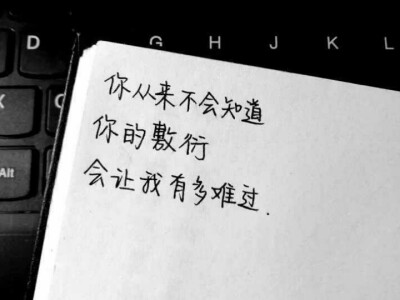 D G H J K L
X C
Alt
你从来不会知道
你的敷衍
会让我有多难过.